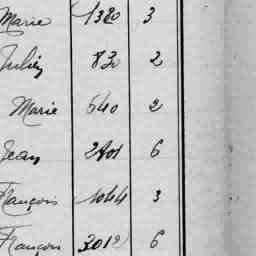 Marie 1380 3
Julien 830 2
Marie 640 2
Jean 2401 6
François 1044 3
François 3012 6